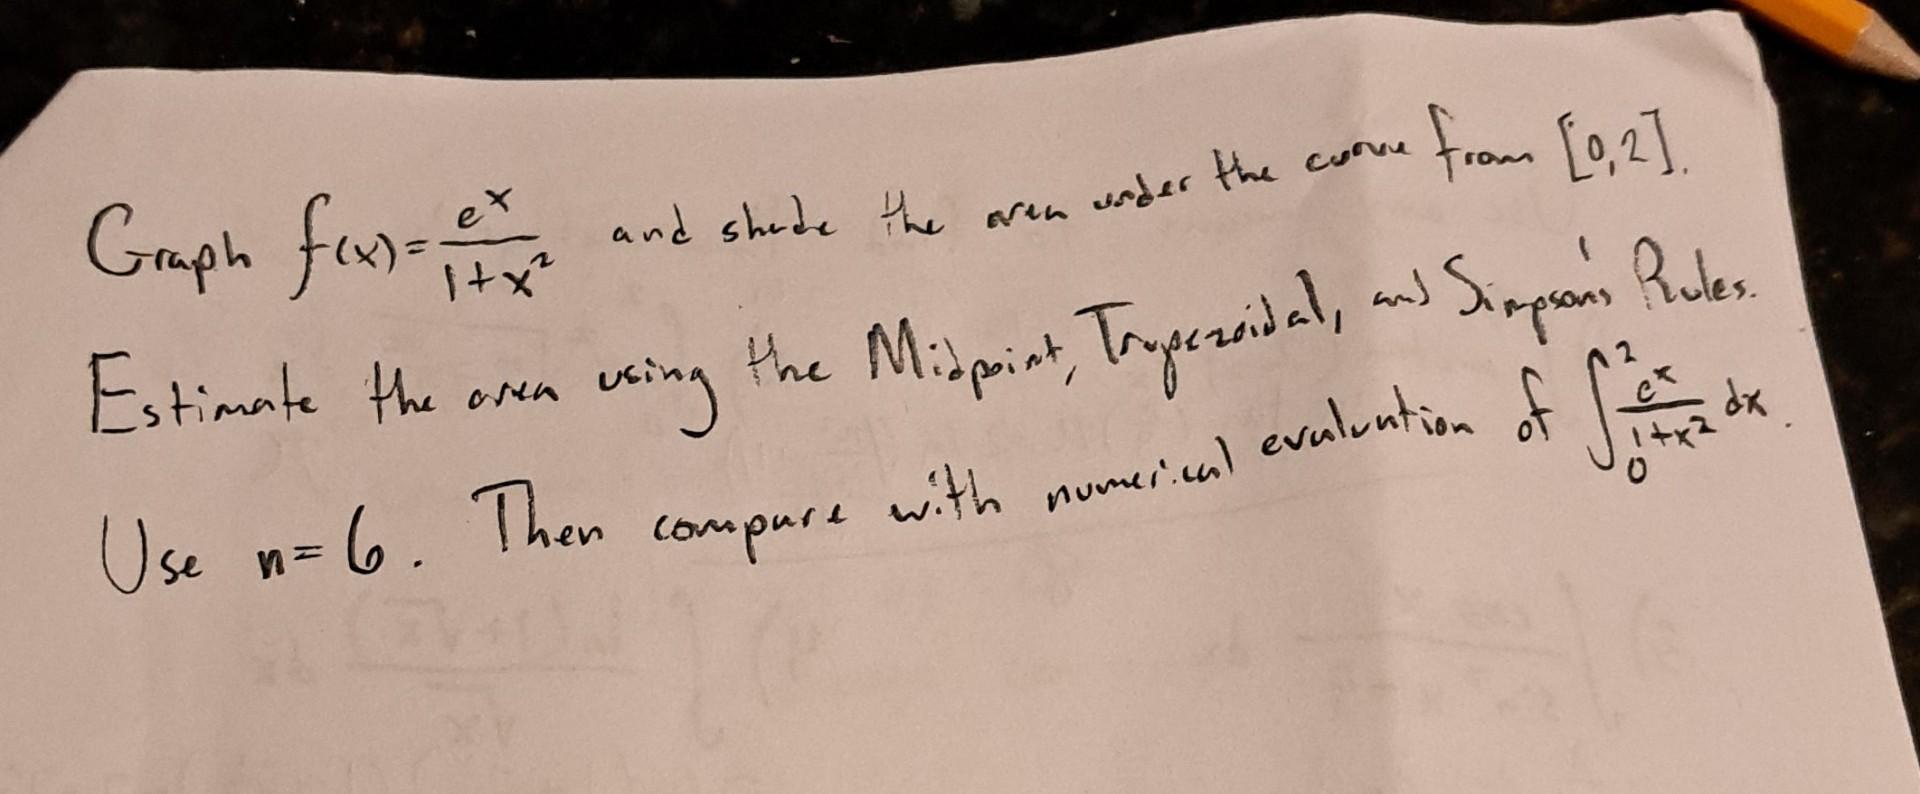 Graph f(x) = e^x / 1+x^2 and shade the area under the curve from [0,2].
Estimate the area using the Midpoint, Trapezoidal, and Simpson's Rules.
Use n=6. Then compare with numerical evaluation of ∫_0^2 e^x / 1+x^2 dx.